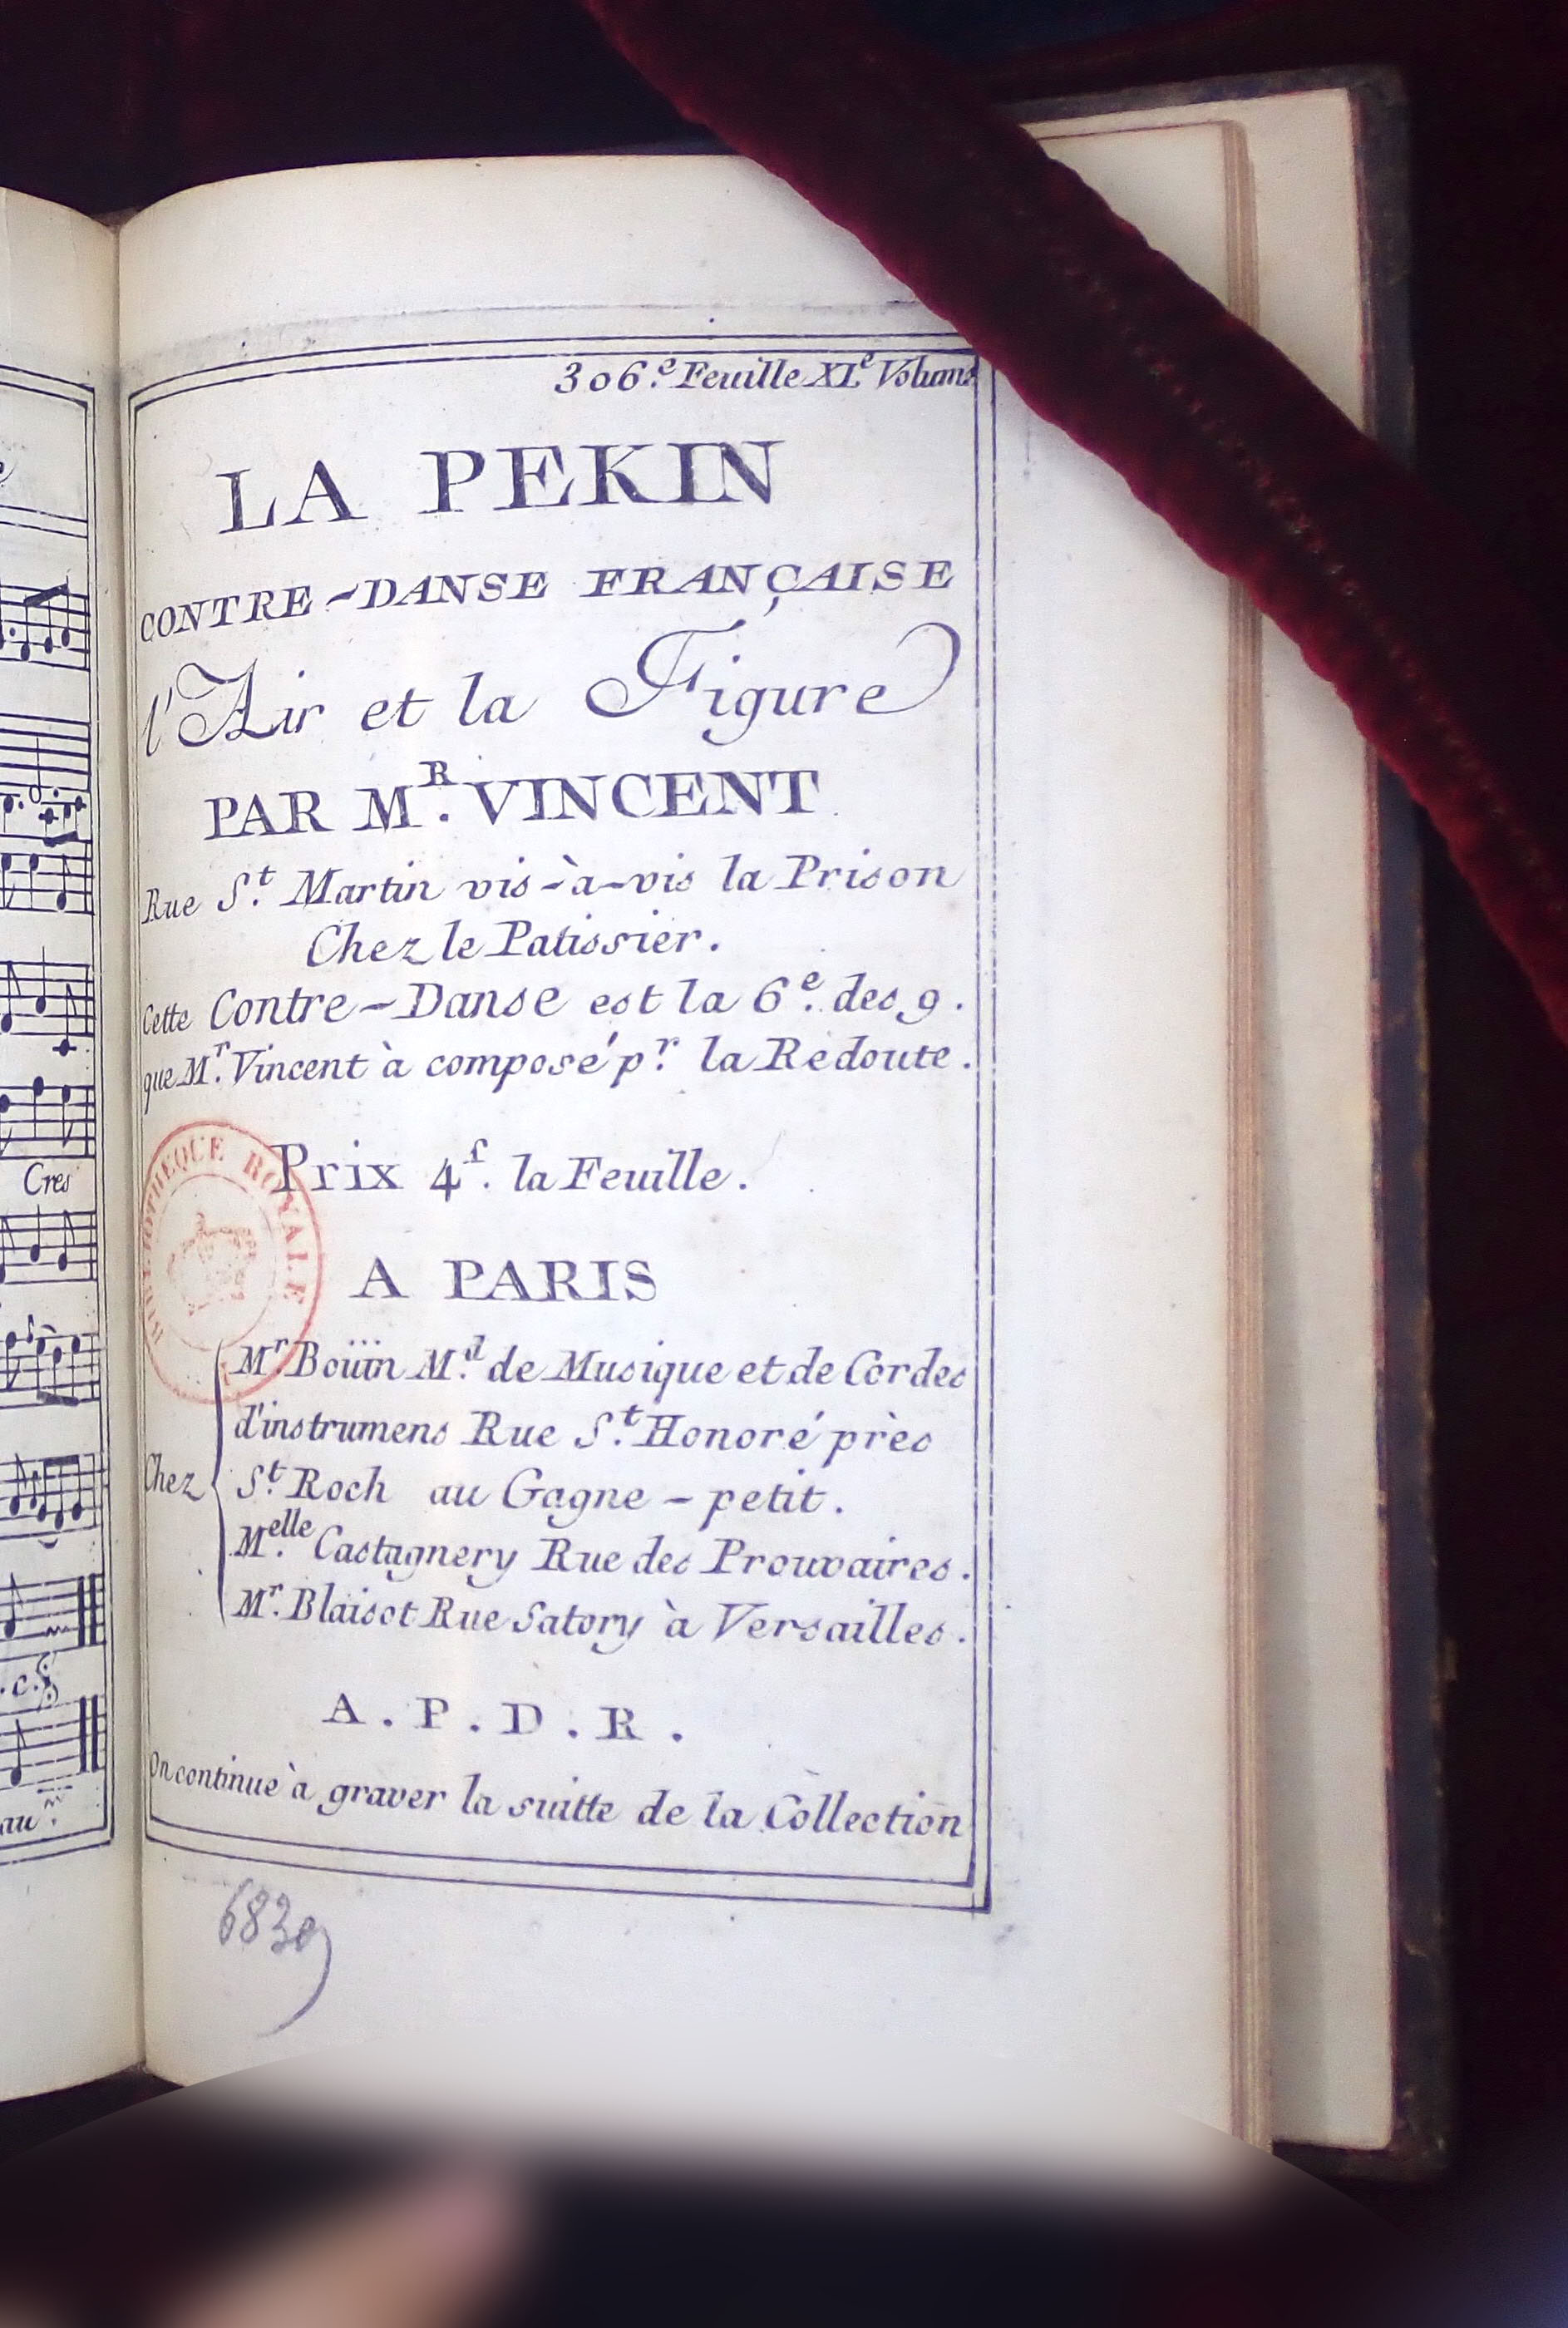 306.e Feuille XI.e Volume
LA PEKIN
CONTRE-DANSE FRANÇAISE
l'Air et la Figure
PAR M.R VINCENT
Rue S.t Martin vis-à-vis la Prison
Chez le Patissier.
Cette Contre-Danse est la 6.e des 9.
que M.r Vincent à composé p.r la Redoute.
Prix 4.f la Feuille.
BIBLIOTHEQUE ROYALE
A PARIS
Chez
M.r Boüin M.d de Musique et de Cordes
d'instrumens Rue S.t Honoré près
S.t Roch au Gagne-petit.
M.elle Castagnery Rue des Prouvaires.
M.r Blaisot Rue Satory à Versailles.
A.P.D.R.
On continue à graver la suitte de la Collection
Cres